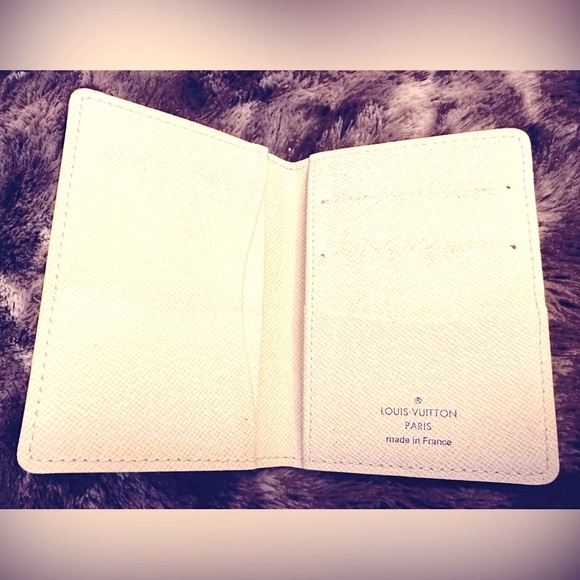 ®
LOUIS VUITTON
PARIS
made in France